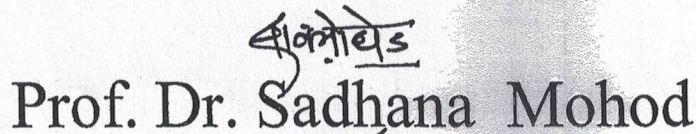 Prof. Dr. Sadhana Mohod